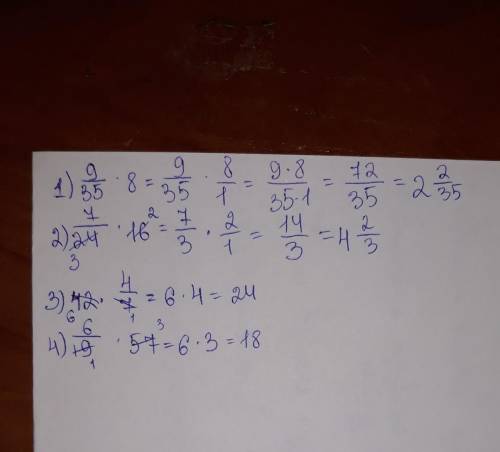 1) 9/35 · 8 = 9/35 · 8/1 = 9·8/35·1 = 72/35 = 2 2/35
2) 7/24 3 · 16 2 = 7/3 · 2/1 = 14/3 = 4 2/3
3) 42 6 · 4/7 1 = 6 · 4 = 24
4) 6/19 1 · 57 3 = 6 · 3 = 18